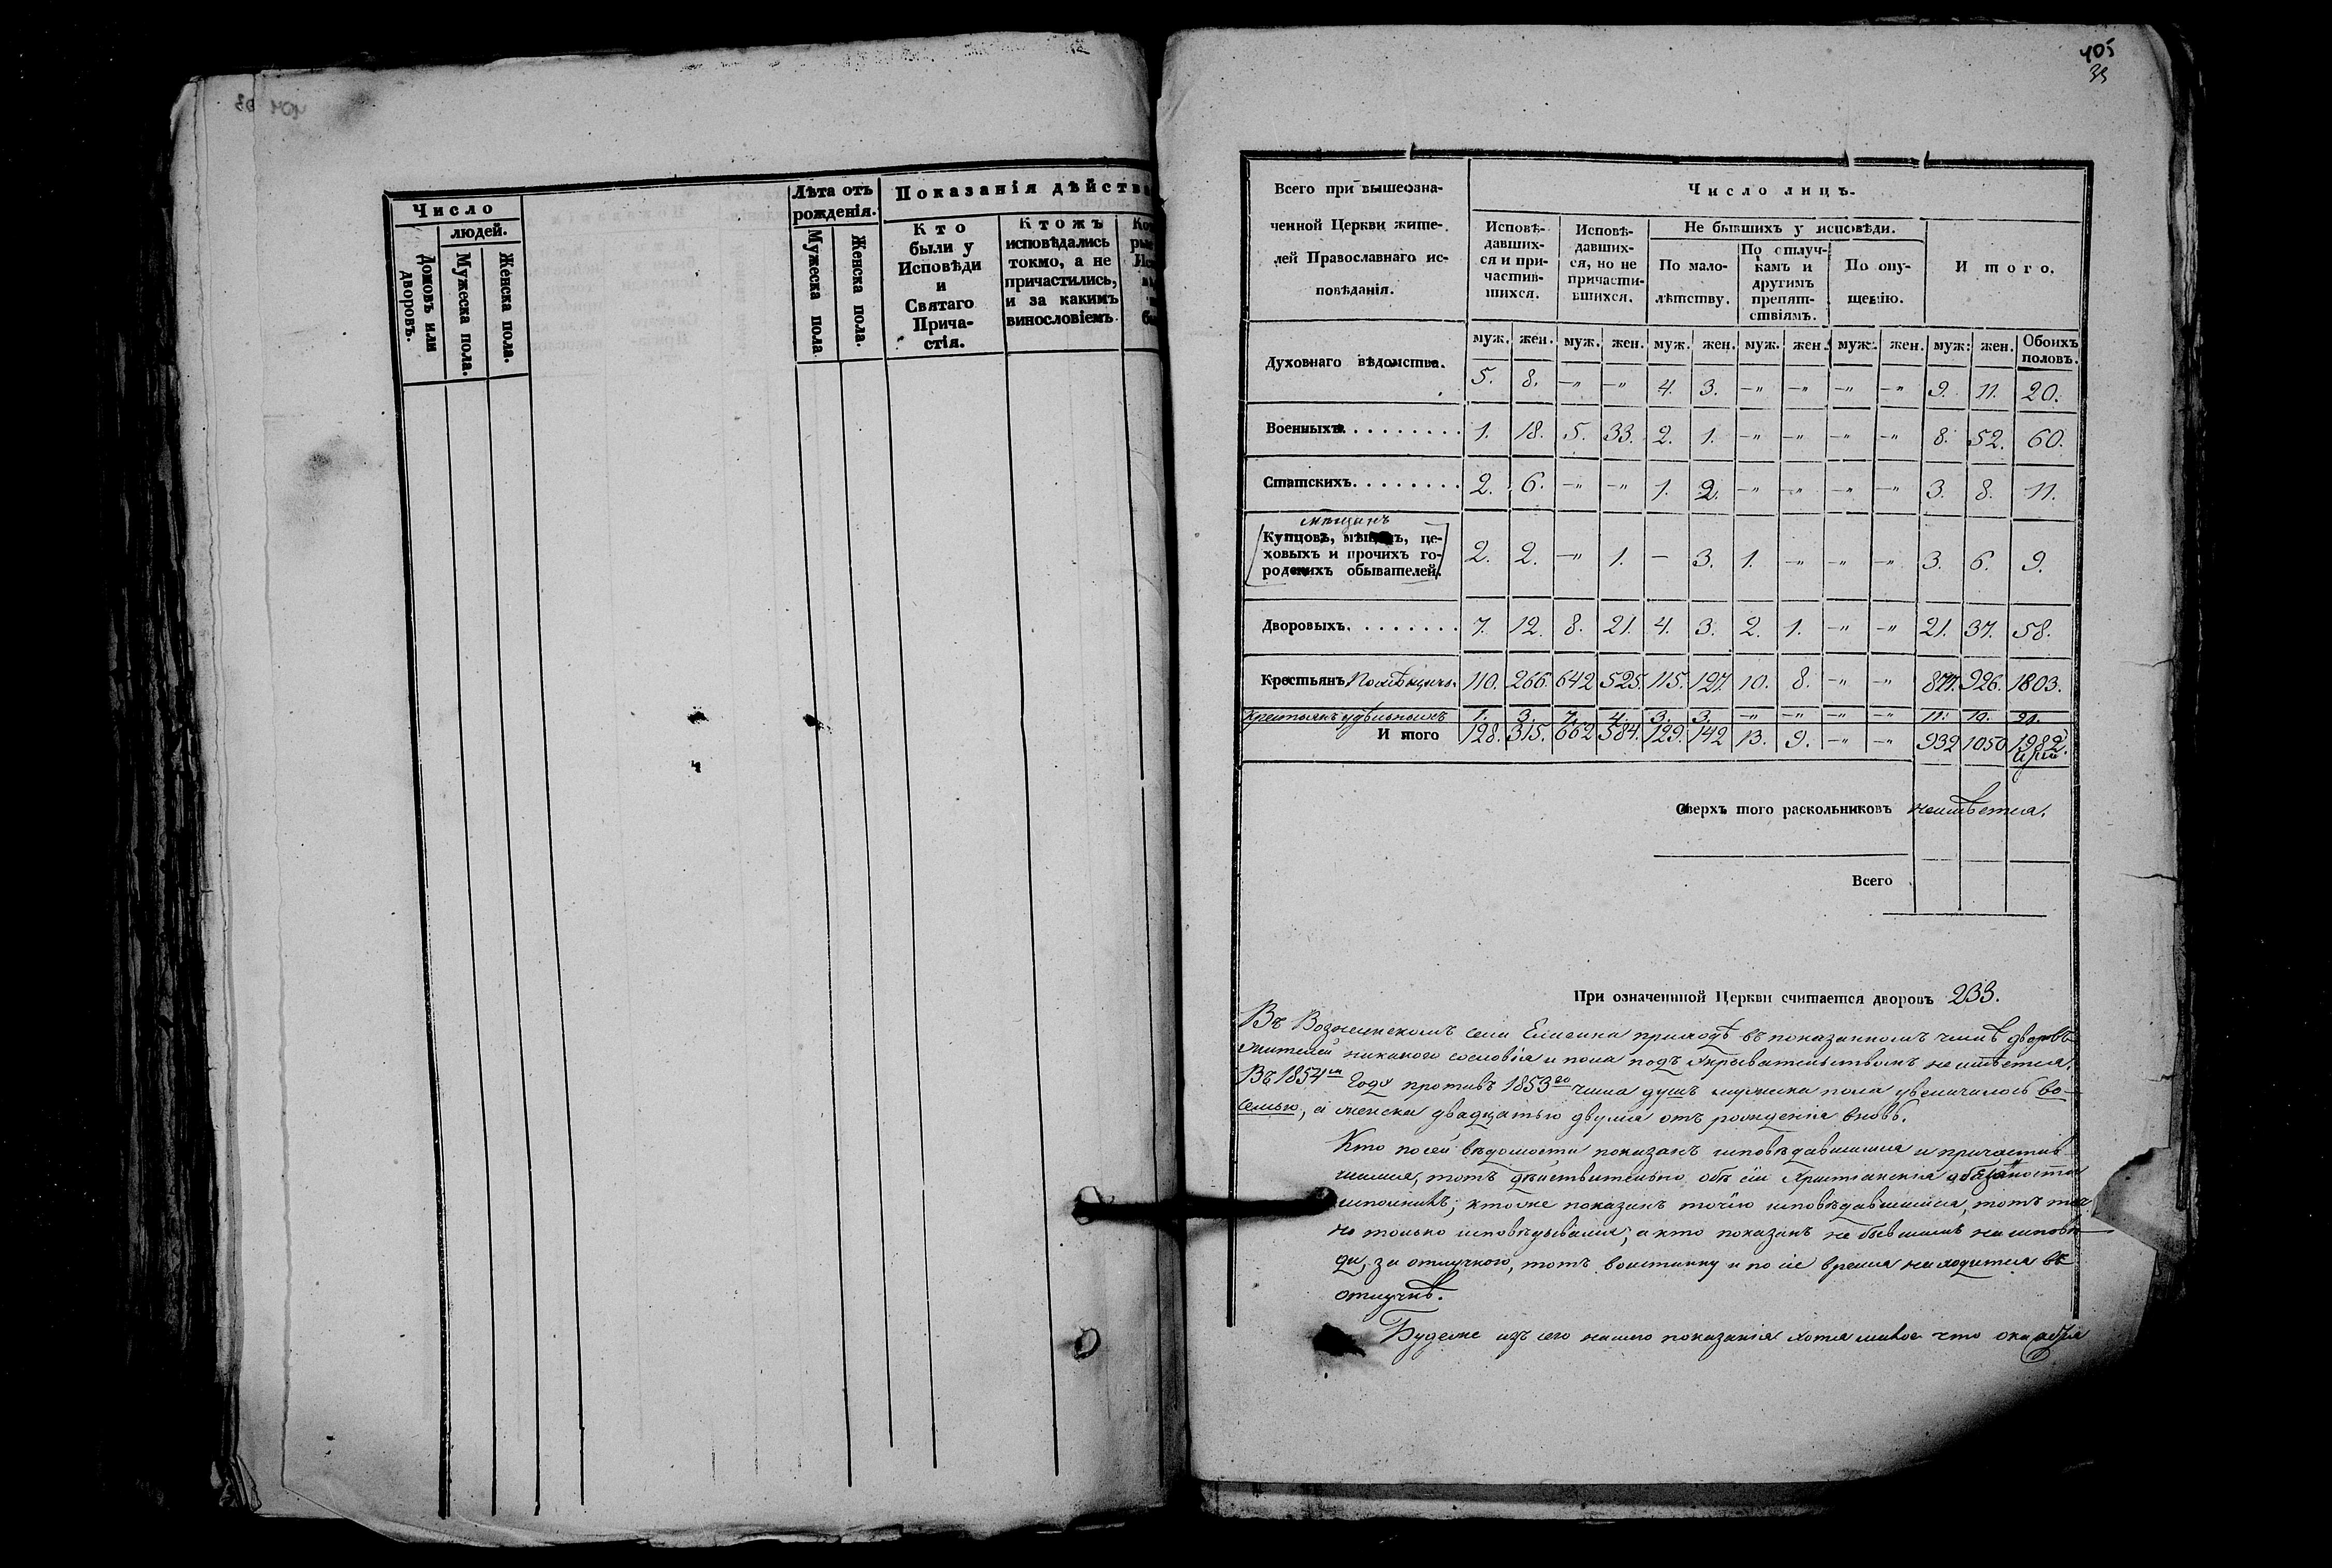 Число
людей.
Домовъ или дворовъ.
Мужеска пола.
Женска пола.
Лѣта отъ
рожденія.
Мужеска пола
Женска пола.
Показанія дѣйства
Кто
были у
Исповѣди
и
Святаго
Прича-
стія.
Ктожъ
исповѣдались
токмо, а не
причастились,
и за какимъ
винословіемъ.
405
Всего при вышеозна-
ченной Церкви жите-
лей Православнаго ис-
повѣданія.
Число лицъ.
Исповѣ-
давших-
ся и при-
частив-
шихся.
Исповѣ-
давших-
ся, но не
причасти-
вшихся.
Не бывшихъ у исповѣди.
По мало-
лѣтству.
По отлуч-
камъ и
другимъ
препят-
ствіямъ.
По опу-
щенію.
Итого.
муж. жен. муж. жен. муж. жен. муж. жен. муж. жен. муж: жен. Обоихъ половъ.
Духовнаго вѣдомства. 5. 8. —„ —„ 4. 3. —„ —„ —„ —„ 9. 11. 20.
Военныхъ. . . . . . . . . 1. 18. 5. 33. 2. 1. —„ —„ —„ —„ 8. 52. 60.
Статскихъ. . . . . . . . 2. 6. —„ —„ 1. 2. —„ —„ —„ —„ 3. 8. 11.
мещанъ
Купцовъ, це-
ховыхъ и прочихъ го-
родскихъ обывателей. 2. 2. —„ 1. — 3. 1. —„ —„ —„ 3. 6. 9.
Дворовыхъ. . . . . . . 7. 12. 8. 21. 4. 3. 2. 1. —„ —„ 21. 37. 58.
Крестьянъ Помѣщичь. 110. 266. 642 525. 115. 127. 10. 8. —„ —„ 877. 926. 1803.
Крестьянъ удѣльныхъ 1. 3. 7. 4. 3. 3. —„ —„ —„ —„ 11. 10. 21.
И того 128. 315. 662 584. 129. 142 13. 9. —„ —„ 932 1050 1982.
Сверхъ того раскольниковъ неимѣется.
Всего
При означенной Церкви считается дворовъ 233.
Въ Вознесенскомъ села приходѣ въ показанномъ числѣ дворовъ
жителей никакого сословія и пола подъ укрывательствомъ неимѣется.
Въ 1854м Году противъ 1853го числа душъ мужеска пола увеличилось во-
семью, а женска двадцатью двумя отъ рожденія вновь.
Кто посей вѣдомости показанъ исповѣдавшимся и причастив-
шимся, тотъ дѣйствительно обѣ сіи Христіанскія обязанности
исполнилъ; ктоже показанъ точію исповѣдавшимся, тотъ точ
но только исповѣдывался; а кто показанъ не бывшимъ на исповѣ
ди, за отлучкою, тотъ воистинну и по сіе время находится въ
отлучкѣ.
Будеже изъ сего нашего показанія хотя малое что окажется